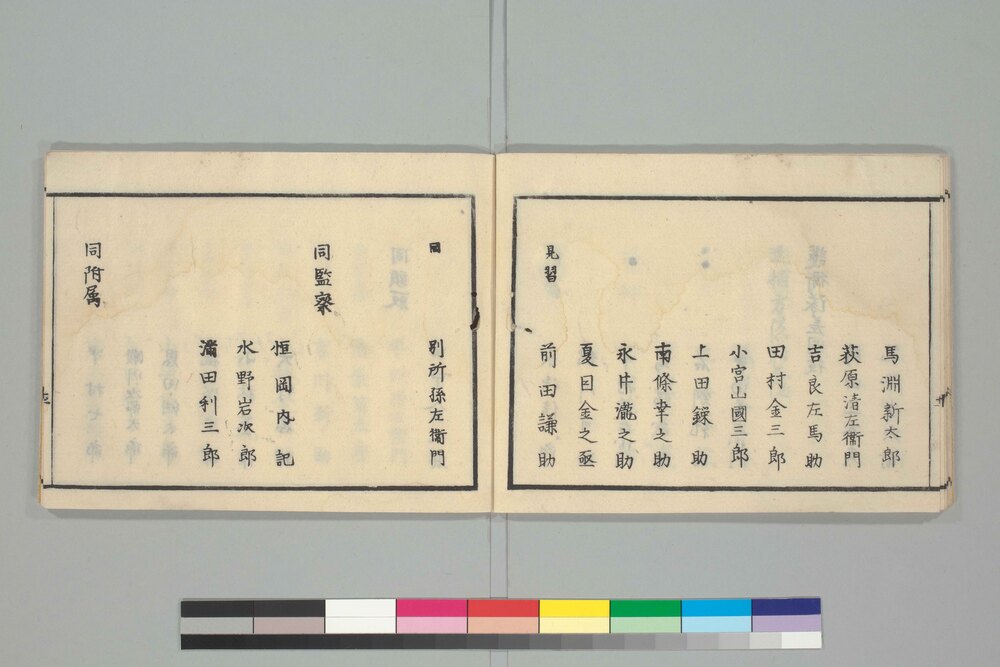 馬淵新太郎
荻原清左衞門
吉良左馬助
田村金三郎
小宮山國三郎
上田録助
南條幸之助
永井瀧之助
夏目金之亟
見習 前田謙助
同 別所孫左衞門
同監察
恒岡内記
水野岩次郎
滿田利三郎
同附属